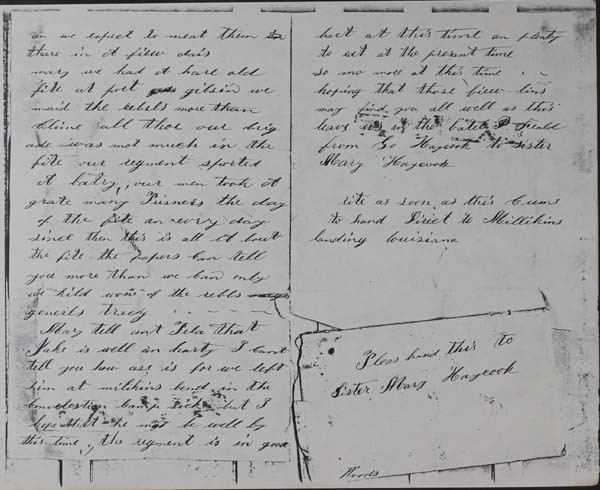 an we expect to meat them in
thare in A fiew dais
mary we had A hard old
fite at port gibsin we
maid the rebels more than
clime all thoe our brig
ade was not much in the
fite our regment sported
A batry, our men took A
grate many Prisners the day
of the fite an every day
since then this is all A bout
the fite the papers can tell
you more than we can only
we kild wone of the rebls
generls tracy
Mary tell ant Fela that
Jake is well an harty I cant
tell you how ase is for we left
him at milikins bend in the
convolestian camp sick but I
hope that he may be well by
this time, the regment is in good
hart at this time an plenty
to eit at the present time
so mo more at this time
hoping that those fiew lins
may find you all well as this
leavs us in the batel Feald
from Go Haycook to sister
Mary Haycook
rite as soon as this Cums
to hand Direct to Millikins
landing louisiana
Pleas hand this to
Sister Mary Haycook
Woods